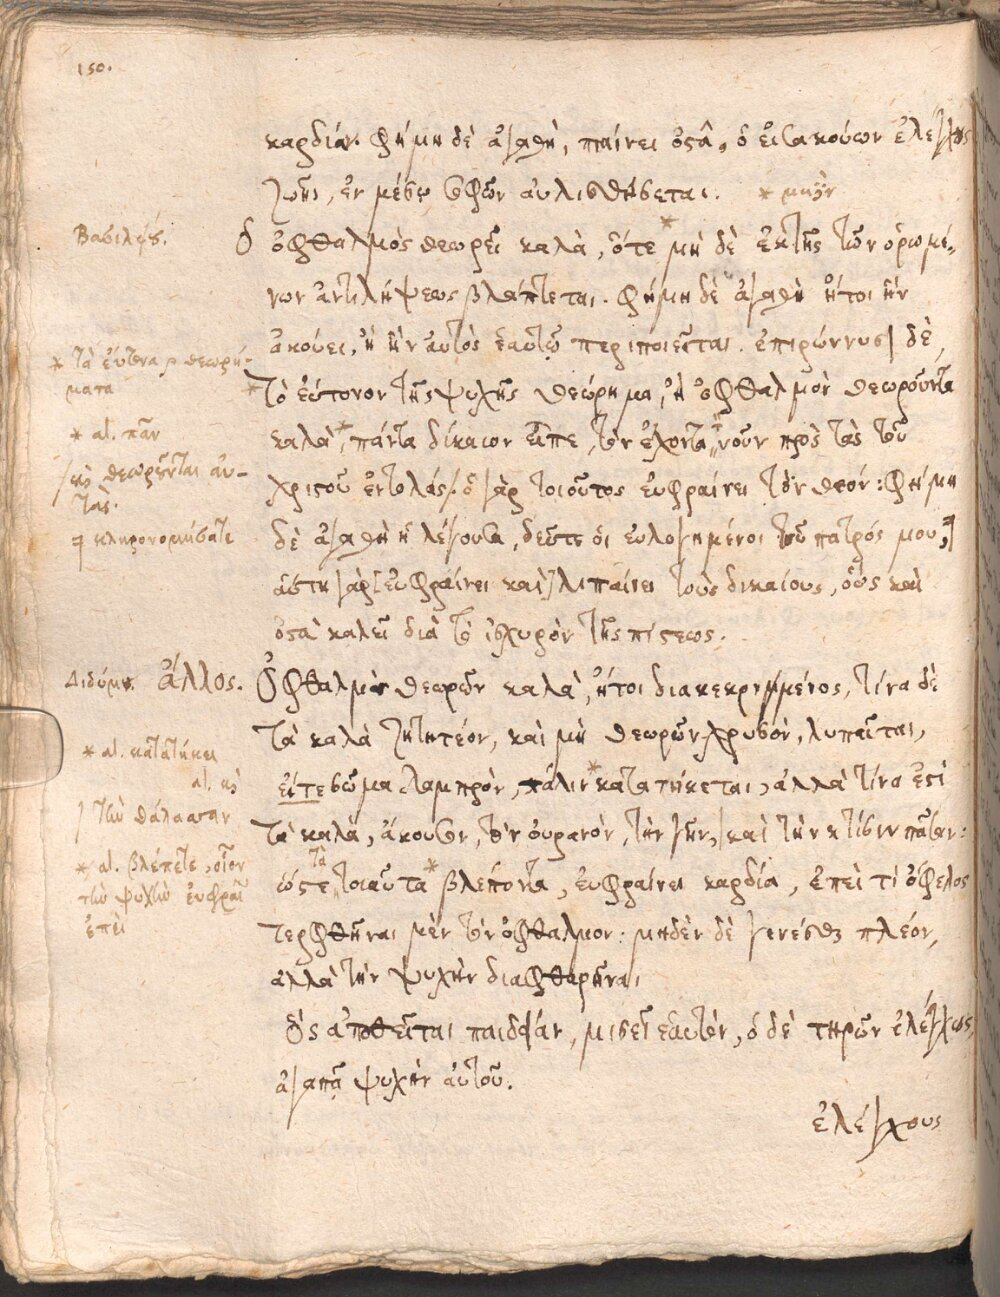 150.
καρδίαν. φήμη δὲ ἀγαθὴ, πιαίνει ὀστᾶ. ὁ εἰσακούων ἐλέγχους
ζωῆς, ἐν μέσῳ σοφῶν αὐλισθήσεται. * μὴν
Βασιλείου. Ὁ ὀφθαλμὸς θεωρεῖ καλὰ, ὅτε * μὴ δὲ ἐκ τῆς τῶν ὁρωμέ-
νων ἀντιλήψεως βλάπτεται. φήμη δὲ ἀγαθὴ ἤτοι ἣν
ἀκούει, ἢ ἣν αὐτὸς ἑαυτῷ περιποιεῖται. ἐπιρώννυσι δὲ,
* τὰ εὔτονα θεωρή-
ματα
* τὸ εὔτονον τῆς ψυχῆς θεώρημα, ἢ ὀφθαλμὸν θεωροῦντα
* al. πᾶν
καλὰ, * πάντα δίκαιον εἶπε, τὸν ἔχοντα νοῦν πρὸς τὰς τοῦ
/ κὶ θεωροῦνται αὐ-
τάς.
χριστοῦ ἐντολάς / ὁ γὰρ τοιοῦτος εὐφραίνει τὸν θεόν: φήμη
κληρονομήσατε
δὲ ἀγαθὴ ἡ λέγουσα, δεῦτε οἱ εὐλογημένοι τοῦ πατρός μου,
αὕτη γὰρ [εὐφραίνει καὶ] λιπαίνει τοὺς δικαίους, οὓς καὶ
ὀστᾶ καλεῖ διὰ τὸ ἰσχυρὸν τῆς πίστεως.
Διδύμου. Ἄλλος. Ὀφθαλμὸς θεωρῶν καλὰ, ἤτοι διακεκριμμένος, τίνα δὲ
τὰ καλὰ ζητητέον, καὶ μὴ θεωρῶν χρυσὸν, λυπεῖται,
* al. κατατήκει
al. κὶ
εἴτε σῶμα λαμπρὸν, πάλιν * κατατήκεται, ἀλλὰ τίνα ἐστὶ
/ τὴν θάλασσαν
τὰ καλὰ, ἄκουσον, τὸν οὐρανὸν, τὴν γῆν, / καὶ τὴν κτίσιν πᾶσαν:
* al. βλέπετε, οἷον
τὴν ψυχὴν εὐφραί
ἐπεὶ
ὥστε τὰ τοιαῦτα * βλέποντα, εὐφραίνει καρδία, ἐπεὶ τί ὄφελος
τερφθῆναι μὲν τὸν ὀφθαλμὸν: μηδὲν δὲ γενέσθαι πλέον,
ἀλλὰ τὴν ψυχὴν διαφθαρῆναι
Ὃς ἀποθεῖται παιδείαν, μισεῖ ἑαυτὸν, ὁ δὲ τηρῶν ἐλέγχους,
ἀγαπᾷ ψυχὴν αὐτοῦ.
ἐλέγχους